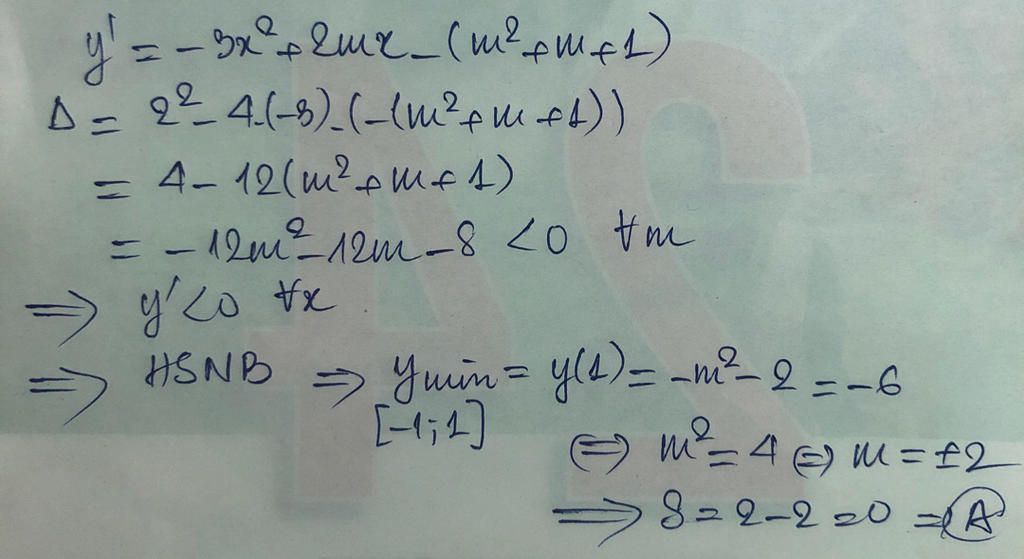 y' = -3x² + 2mx - (m² + m + 1)
Δ = 2² - 4.(-3).(-(m² + m + 1))
= 4 - 12(m² + m + 1)
= -12m² - 12m - 8 < 0 ∀m
⇒ y' < 0 ∀x
⇒ HSNB ⇒ ymin = y(1) = -m² - 2 = -6
[-1; 1]
⇔ m² = 4 ⇔ m = ±2
⇒ S = 2 - 2 = 0 ⇒ A